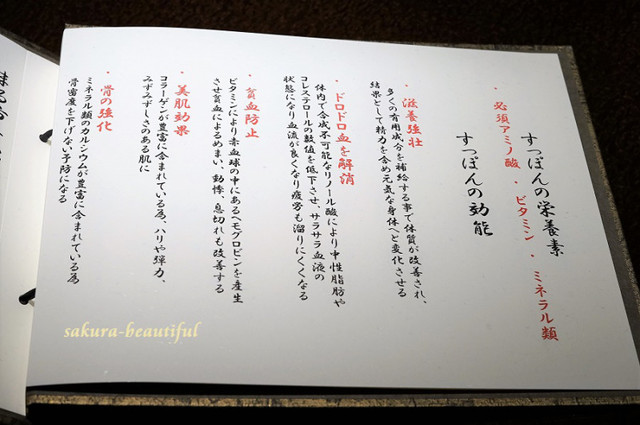 すっぽんの栄養素
必須アミノ酸・ビタミン・ミネラル類
すっぽんの効能
・滋養強壮
多くの有用成分を補給する事で体質が改善され、
結果として精力を含め元気な身体へと変化させる
・ドロドロ血を解消
体内で合成不可能なリノール酸により中性脂肪や
コレステロールの数値を低下させ、サラサラ血液の
状態になり血流が良くなり疲労も溜りにくくなる
・貧血防止
ビタミンにより赤血球の中にあるヘモグロビンを産生
させ貧血によるめまい、動悸、息切れも改善する
・美肌効果
コラーゲンが豊富に含まれている為、ハリや弾力、
みずみずしさのある肌に
・骨の強化
ミネラル類のカルシウムが豊富に含まれている為
骨密度を下げない予防になる
sakura-beautiful